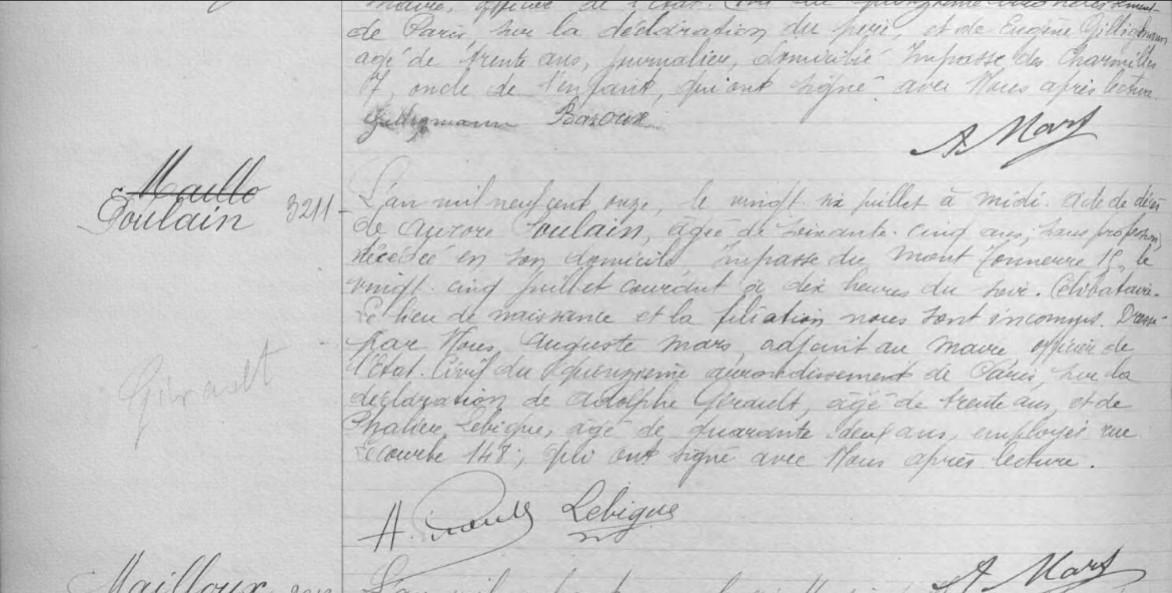 maire, officier de l'Etat. Civil du quinzième arrondissement
de Paris, sur la déclaration du père, et de Eugène
agé de trente ans, journalier, domicilié Impasse des Charmilles
7, oncle de l'enfant, qui ont signé avec Nous après lecture.
Baroux
A Mars
Maillo
Poulain 3211
L'an mil neuf cent onze, le vingt six juillet à midi. acte de décès
de Aurore Poulain, agée de soixante. cinq ans, sans profession,
décédée en son domicile Impasse du Mont Tonnerre 15, le
vingt. cinq juillet courant à dix heures du soir. Célibataire.
Le lieu de naissance et la filiation nous sont inconnus. Dressé
par Nous, Auguste Mars, adjoint au maire officier de
l'Etat. Civil du quinzième arrondissement de Paris, sur la
déclaration de Adolphe Girault, agé de trente ans, et de
Lebigue, agé de quarante deux ans, employés rue
Lecourbe 148, qui ont signé avec Nous après lecture.
Girault
A. Girault Lebigue
A Mars
Mailloux
L'an mil